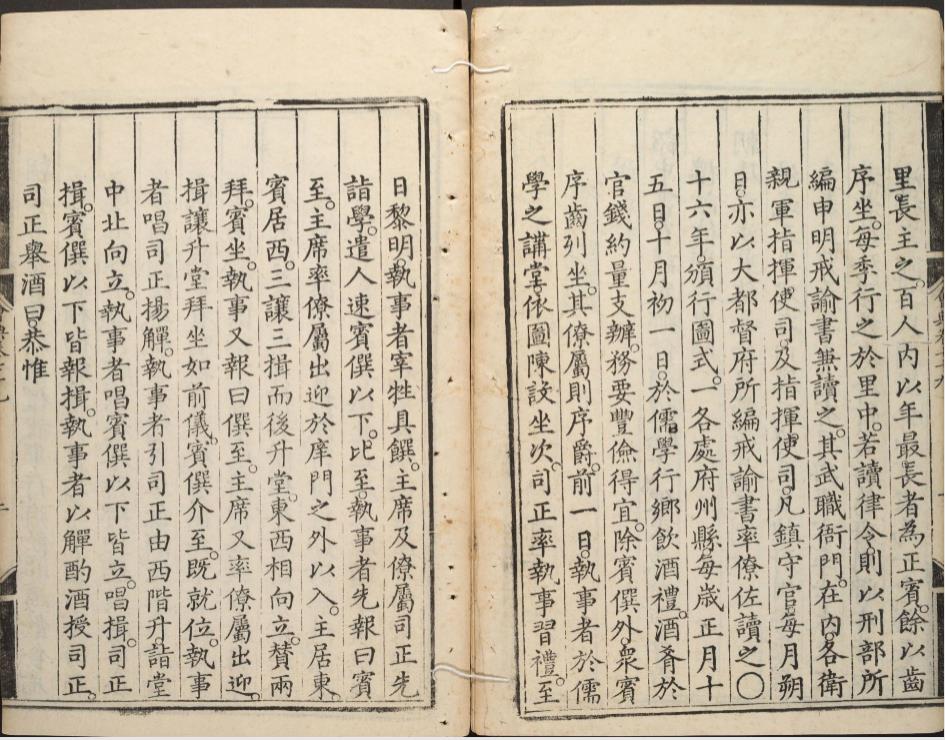 里長主之。百人内以年最長者為正賓。餘以齒
序坐。每季行之於里中。若讀律令。則以刑部所
編申明戒諭書兼讀之。其武職衙門。在内各衛
親軍指揮使司。及指揮使司。凡鎮守官每月朔
日。亦以大都督府所編戒諭書率僚佐讀之〇
十六年。頒行圖式。一各處府州縣每歳正月十
五日。十月初一日。於儒學行鄉飲酒禮。酒肴於
官錢約量支辦。務要豐儉得宜。除賓僎外。衆賓
序齒列坐。其僚屬則序爵。前一日。執事者於儒
學之講堂。依圖陳設坐次。司正率執事習禮。至
日黎明。執事者宰牲具饌。主席及僚屬司正先
詣學。遣人速賓僎以下。比至。執事者先報曰賓
至。主席率僚屬出迎於庠門之外以入。主居東。
賓居西。三讓三揖而後升堂。東西相向立。賛兩
拜。賓坐。執事又報曰僎至。主席又率僚屬出迎。
揖讓升堂拜坐如前儀。賓僎介至。既就位。執事
者唱司正揚觶。執事者引司正由西階升。詣堂
中北向立。執事者唱賓僎以下皆立。唱揖。司正
揖。賓僎以下皆報揖。執事者以觶酌酒授司正。
司正舉酒曰。恭惟